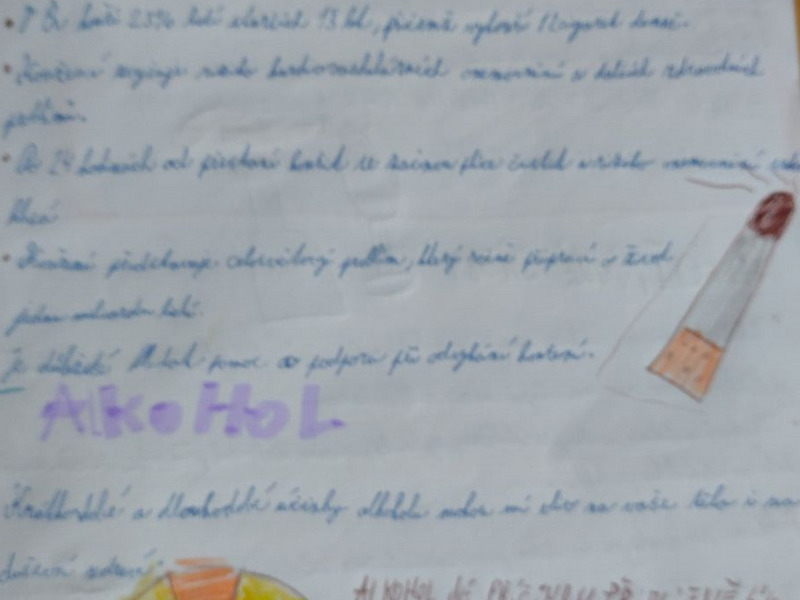 • V ČR kouří 23% lidí starších 15 let, přičemž vykouří 12 cigaret denně.
• Kouření zvyšuje riziko kardiovaskulárních onemocnění a dalších zdravotních
problémů.
• Po 24 hodinách od přestání kouřit se začnou plíce čistit a riziko onemocnění
klesá
• Kouření představuje celosvětový problém, který ročně připraví o život
jednu miliardu lidí.
Je důležité hledat pomoc a podporu při odvykání kouření.
AlkoHoL
Krátkodobé a dlouhodobé účinky alkoholu mohou mít vliv na vaše tělo i na
duševní zdraví.
AlKOHOL